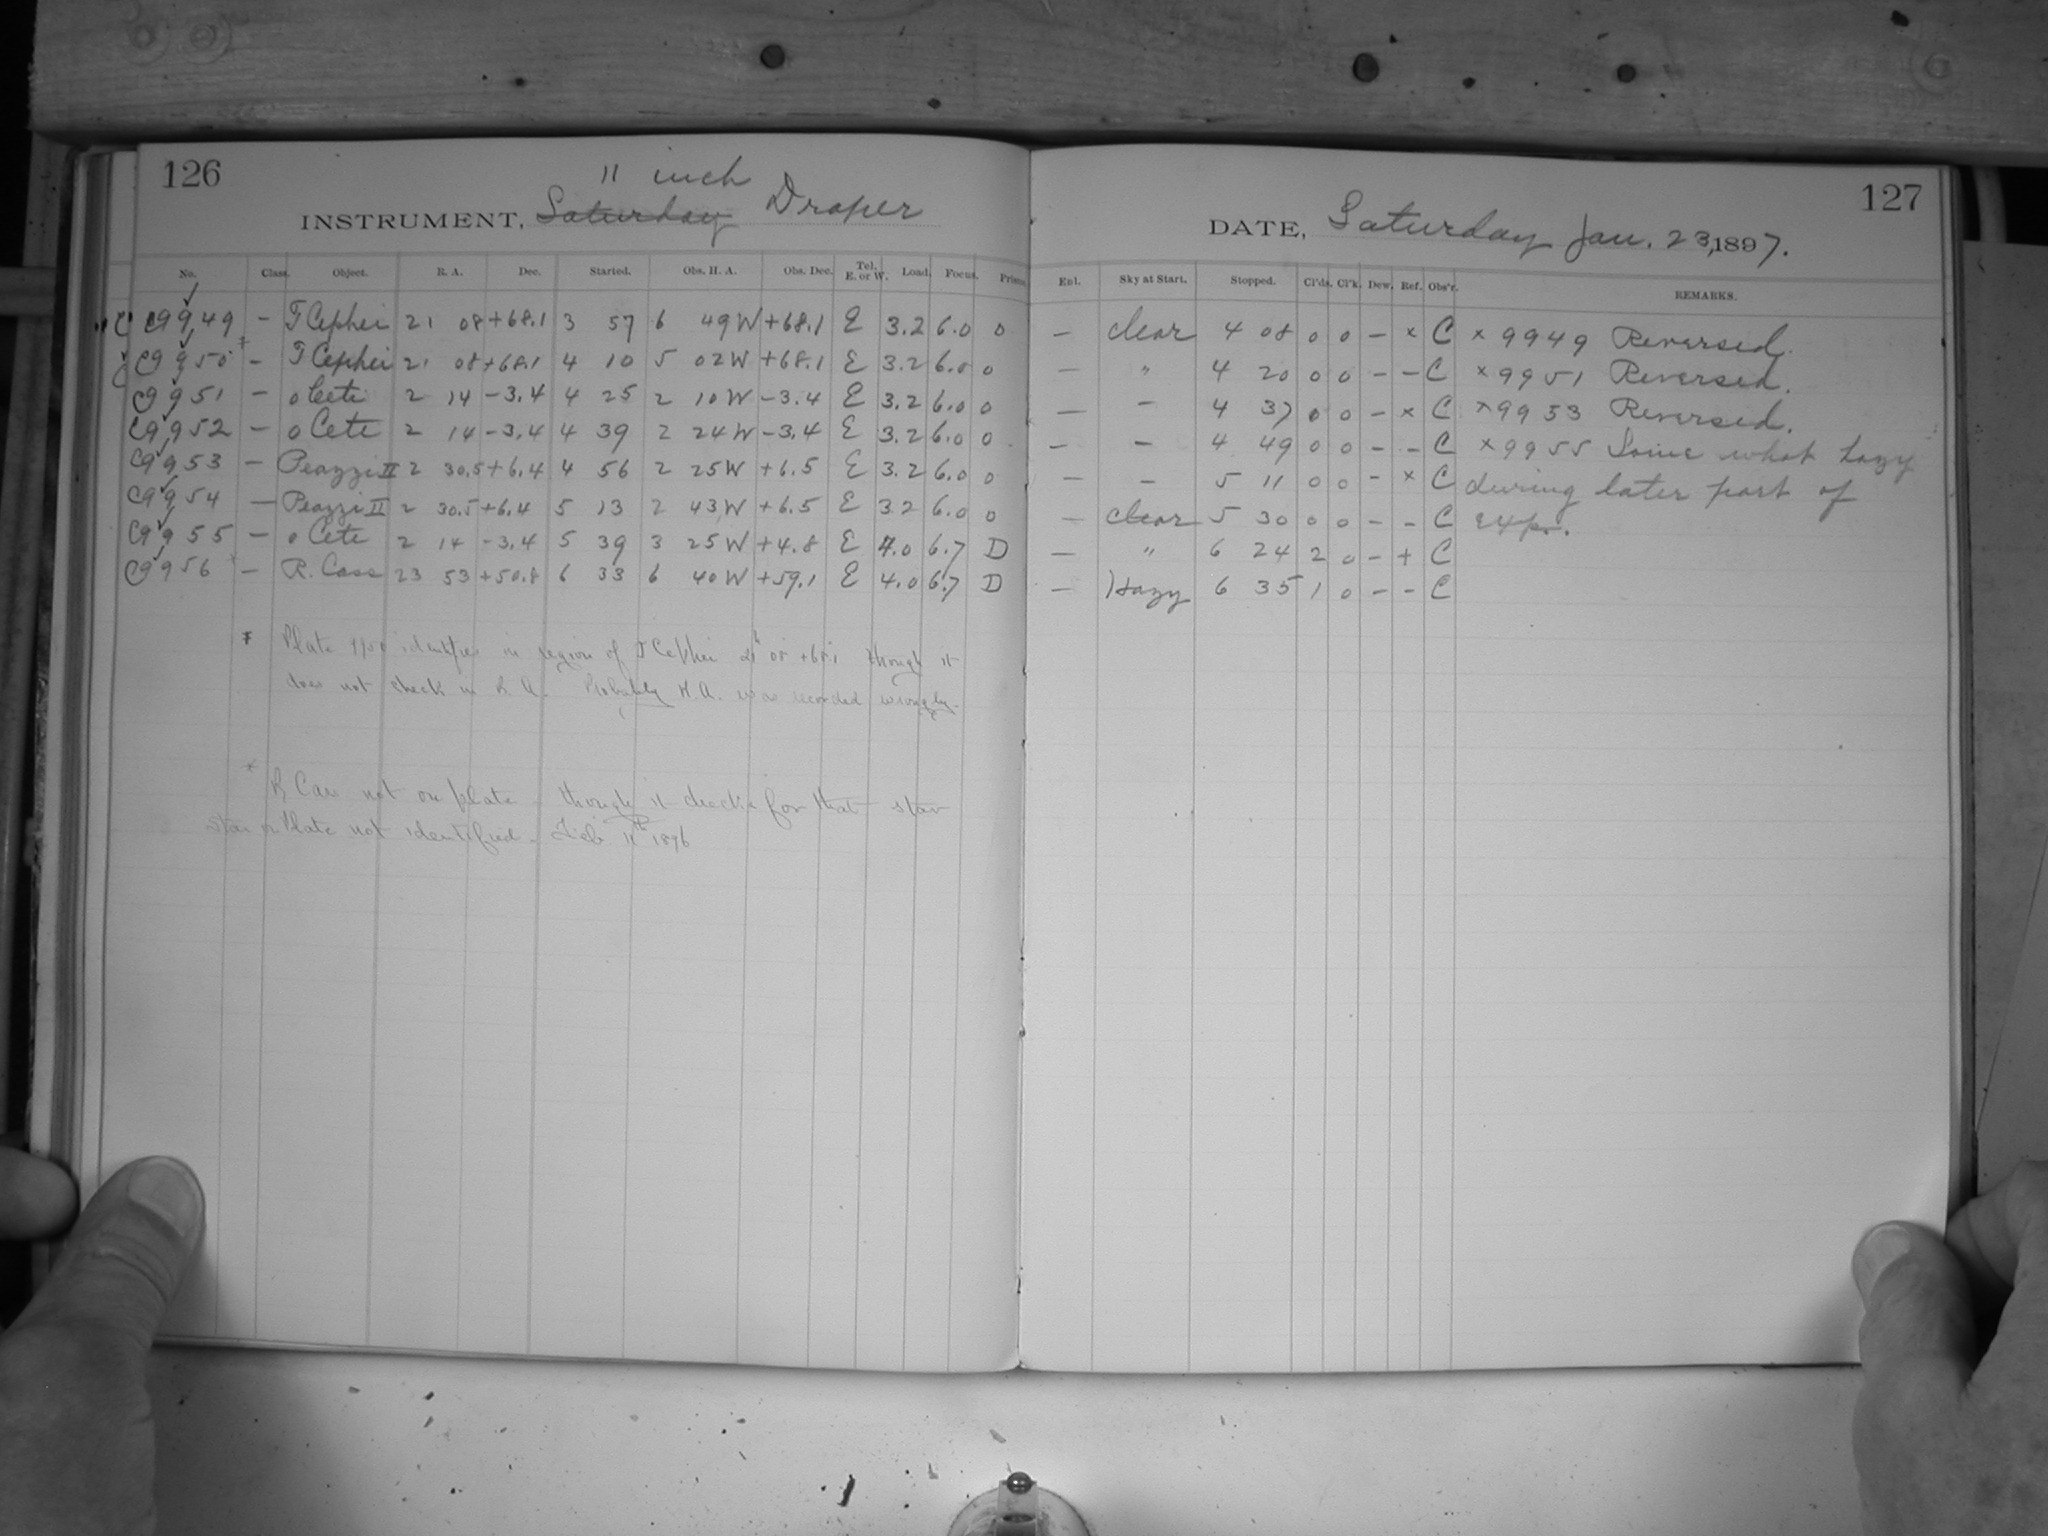 126
11 inch
INSTRUMENT, Saturday Draper
No. Class. Object. R. A. Dec. Started. Obs. H. A. Obs. Dec. Tel. E. or W. Load. Focus. Prism.
C9949 - T Cephei 21 08 +68.1 3 57 6 49 W +68.1 E 3.2 6.0 0
C9950* - T Cephei 21 08 +68.1 4 10 5 02 W +68.1 E 3.2 6.0 0
C9951 - o Ceti 2 14 -3.4 4 25 2 10 W -3.4 E 3.2 6.0 0
C9952 - o Cete 2 14 -3.4 4 39 2 24 W -3.4 E 3.2 6.0 0
C9953 - Peazzi II 2 30.5 +6.4 4 56 2 25 W +6.5 E 3.2 6.0 0
C9954 - Peazzi II 2 30.5 +6.4 5 13 2 43 W +6.5 E 3.2 6.0 0
C9955 - o Cete 2 14 -3.4 5 39 3 25 W +4.8 E 4.0 6.7 D
C9956* - R. Cass 23 53 +50.8 6 33 6 40 W +59.1 E 4.0 6.7 D
* Plate 9950 identifies in region of T Cephei 21h 08 +68.1 though it
does not check in R. A. Probably H. A. was recorded wrongly.
* R Cass not on plate - though it checks for that star
Star on Plate not identified - Feb 11th 1896
127
DATE, Saturday Jan. 23, 1897.
Enl. Sky at Start. Stopped. Cl'ds. Cl'k. Dew. Ref. Obs'r. REMARKS.
- clear 4 08 0 0 - × C × 9949 Reversed.
- " 4 20 0 0 - - C × 9951 Reversed.
- - 4 37 0 0 - × C × 9953 Reversed.
- - 4 49 0 0 - - C × 9955 Some what hazy
- - 5 11 0 0 - × C during later part of
- clear 5 30 0 0 - - C exp.
- " 6 24 2 0 - + C
- Hazy 6 35 1 0 - - C